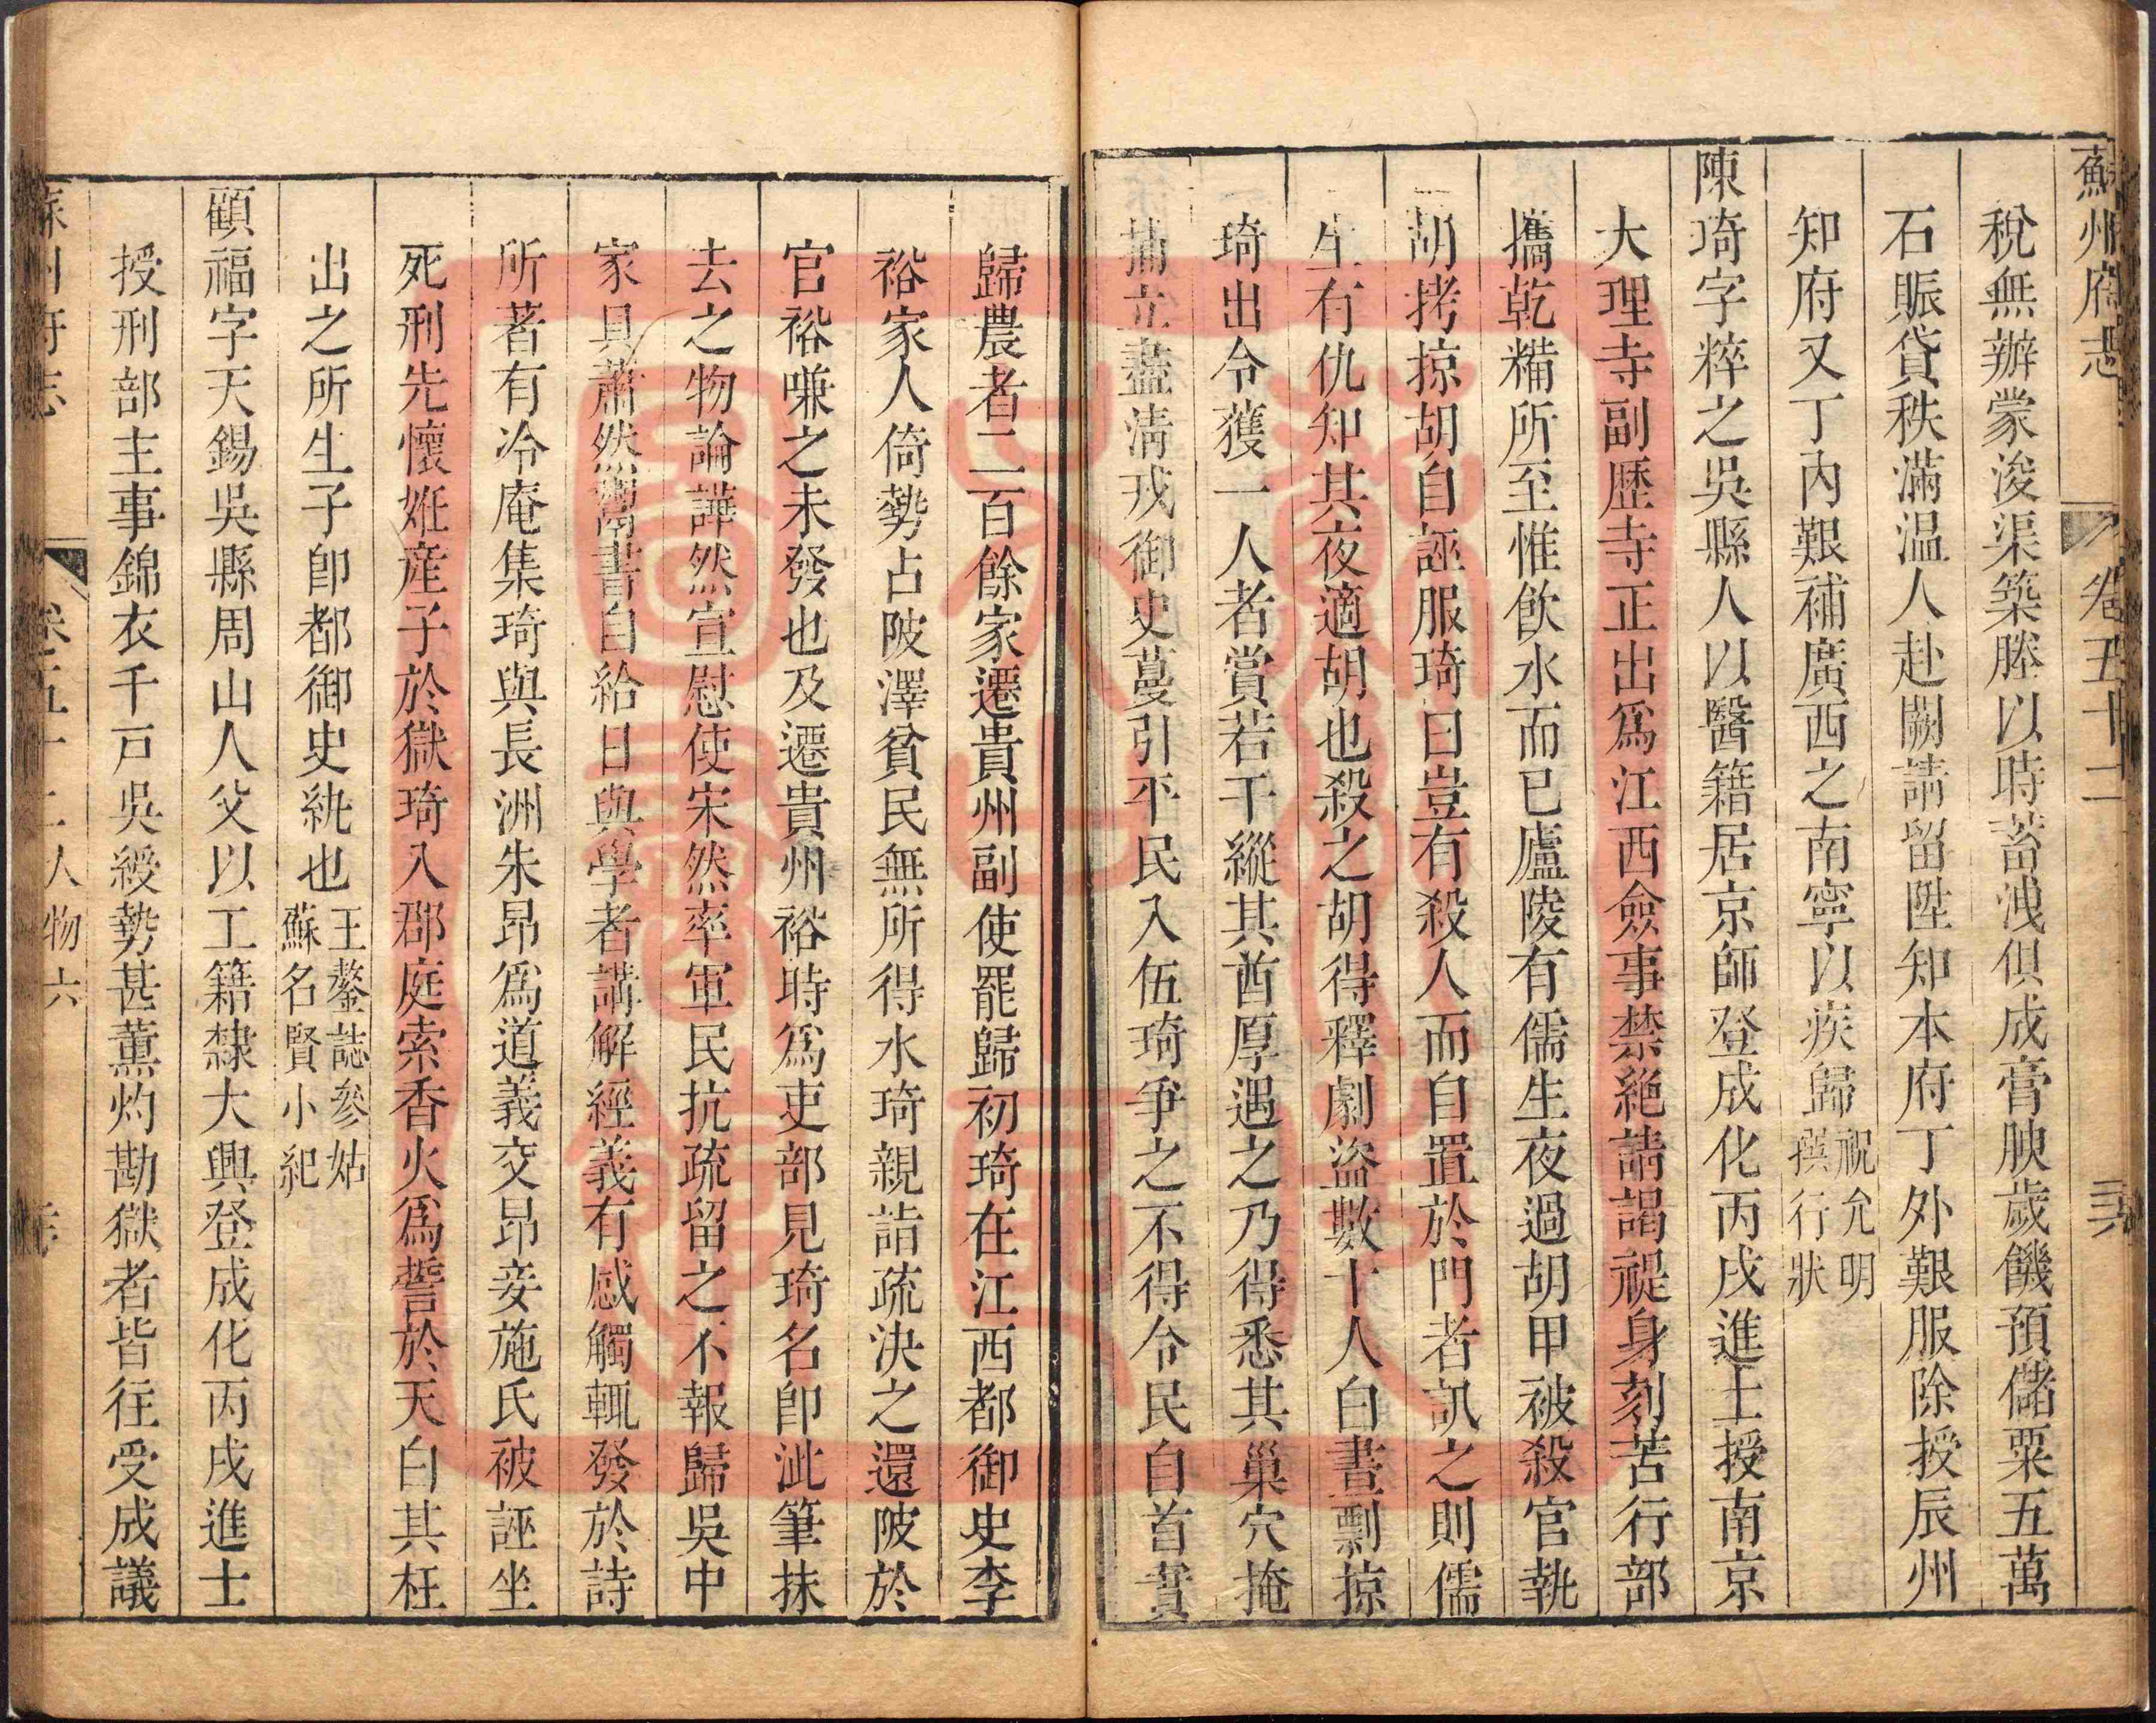 蘇州府志　卷五十二
稅無辦蒙浚渠築塍以時蓄洩俱成膏腴歲饑預儲粟五萬
石賑貸秩滿温人赴闕請留陞知本府丁外艱服除授辰州
知府又丁內艱補廣西之南寧以疾歸祝允明撰行狀
陳琦字粹之吳縣人以醫籍居京師登成化丙戌進士授南京
大理寺副歷寺正出爲江西僉事禁絶請謁禔身刻苦行部
攜乾糒所至惟飲水而已廬陵有儒生夜過胡甲被殺官執
胡拷掠胡自誣服琦曰豈有殺人而自置於門者訊之則儒
生有仇知其夜適胡也殺之胡得釋劇盜數十人白晝剽掠
琦出令獲一人者賞若干縱其酋厚遇之乃得悉其巢穴掩
捕立盡淸戎御史蔓引平民入伍琦爭之不得令民自首實
歸農者二百餘家遷貴州副使罷歸初琦在江西都御史李
裕家人倚勢占陂澤貧民無所得水琦親詣疏決之還陂於
官裕嗛之未發也及遷貴州裕時爲吏部見琦名卽泚筆抹
去之物論譁然宣慰使宋然率軍民抗疏留之不報歸吳中
家具蕭然鬻書自給日與學者講解經義有感觸輒發於詩
所著有冷庵集琦與長洲朱昂爲道義交昂妾施氏被誣坐
死刑先懷姙産子於獄琦入郡庭索香火爲誓於天白其枉
出之所生子卽都御史紈也王鏊誌參姑蘇名賢小紀
顧福字天錫吳縣周山人父以工籍隸大興登成化丙戌進士
授刑部主事錦衣千戸吳綬勢甚薰灼勘獄者皆往受成議
蘇州府志　卷五十二人物六